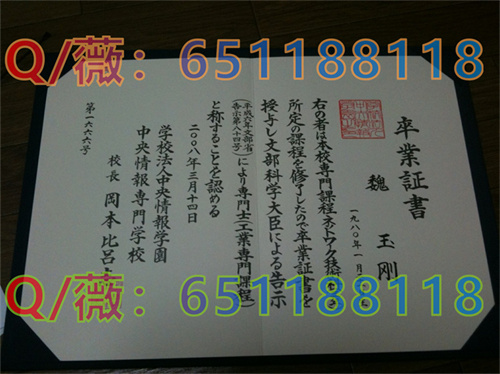 Q/薇：651188118
卒業証書
魏 玉剛
一九八〇年一月
右の者は本校専門課程ネットワーク技術
所定の課程を修了したので卒業証書を
授与し文部科学大臣による告示
(平成六年文部省
告示第八十四号)により専門士(工業専門課程)
と称することを認める
二〇〇八年三月十四日
学校法人中央情報学園
中央情報専門学校
校長 岡本比呂
第一六六六号
Q/薇：651188118